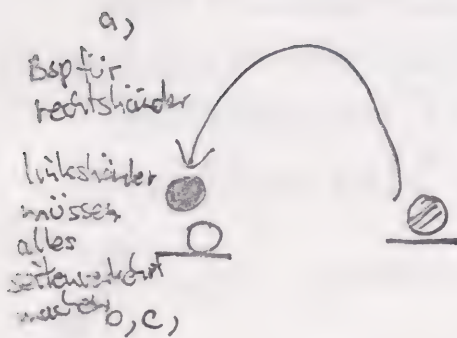 a,
Bsp für
rechtshänder
linkshänder
müssen
alles
seitenverkehrt
machen
b, c,